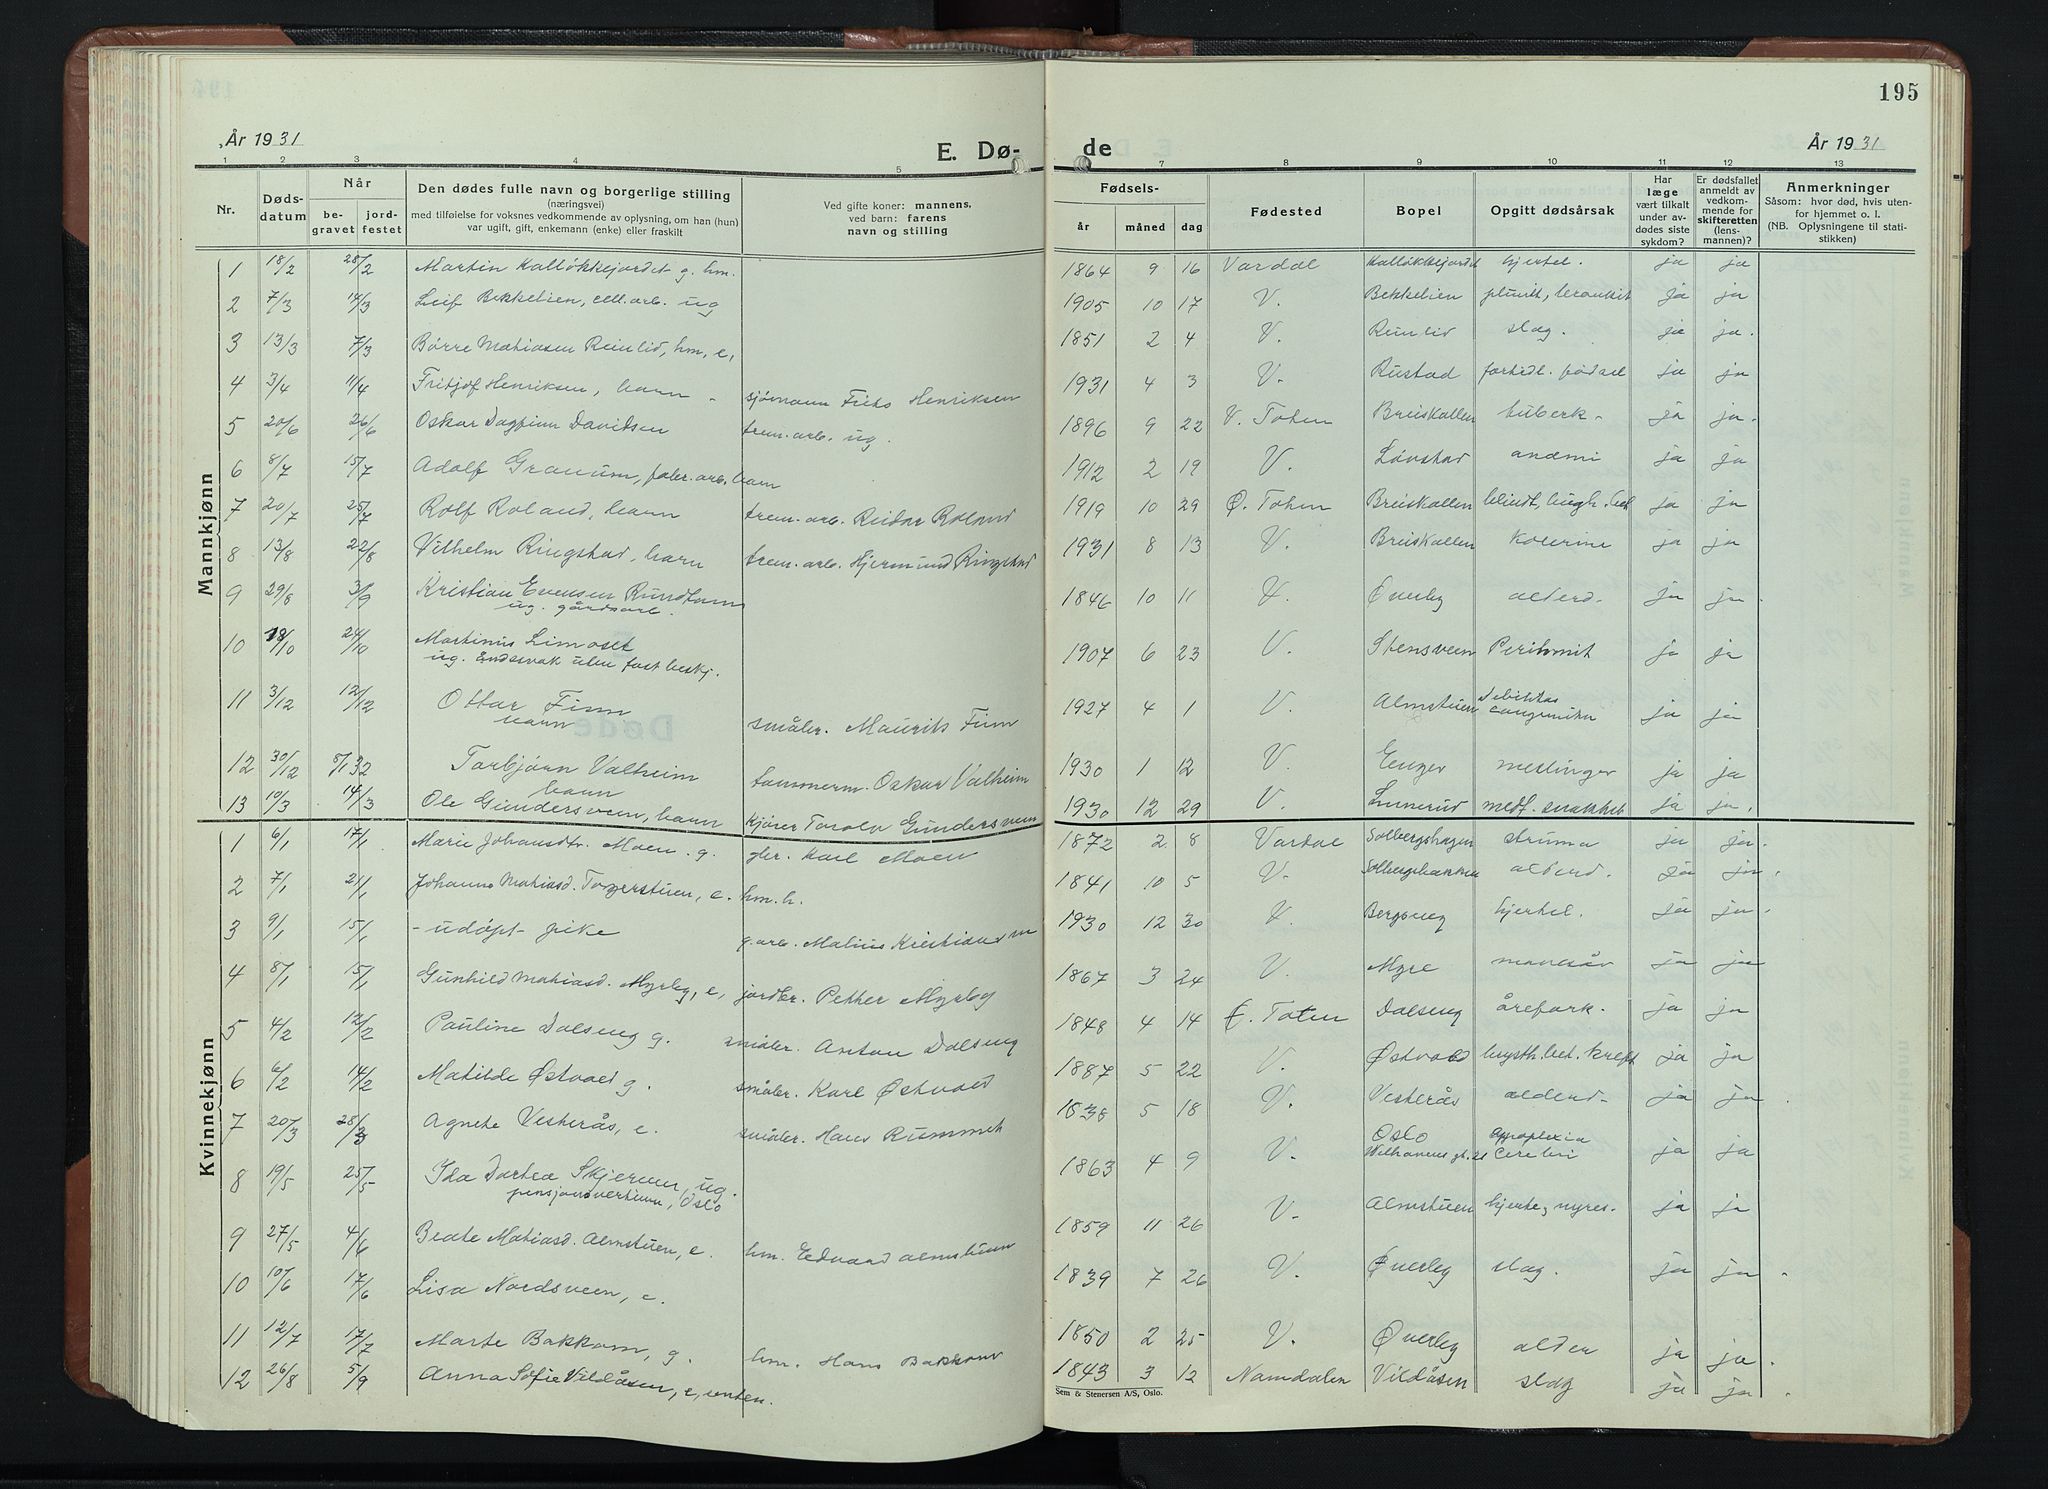 År 1931
E. Dø-
1 2 3 4 5
Nr.
Døds-
datum
Når
be-
gravet
jord-
festet
Den dødes fulle navn og borgerlige stilling
(næringsvei)
med tilføielse for voksnes vedkommende av oplysning, om han (hun)
var ugift, gift, enkemann (enke) eller fraskilt
Ved gifte koner: mannens,
ved barn: farens
navn og stilling
Mannkjønn
1 18/2 28/2 Martin Kalløkkejordet g. hm.
2 7/3 14/3 Leif Bekkelien, cell. arb. ug
3 13/3 7/3 Børre Mathiasen Reinlid, hm, e,
4 3/4 11/4 Fritjof Henriksen, barn - sjømann Frits Henriksen
5 20/6 26/6 Oskar Dagfinn Davidsen trem. arb. ug.
6 8/7 15/7 Adolf Granum, faler. arb. barn
7 20/7 25/7 Rolf Roland, barn trem. arb. Reidar Roland
8 13/8 22/8 Vilhelm Ringstad, barn trem. arb. Hjermund Ringstad
9 29/8 3/9 Kristian Evensen Rundtom
ug. gårdsarb.
10 18/10 24/10 Martinus Limoset
ug. åndssvak uten fast beskj.
11 3/12 12/12 Ottar Finn
barn småbr. Maurits Finn
12 30/12 8/1 32 Torbjørn Valheim
barn tømmerm. Oskar Valheim
13 10/3 14/3 Ole Gundersveen, barn kjører Torolv Gundersveen
Kvinnekjønn
1 6/1 17/1 Marie Johansdtr. Moen. g. gbr. Karl Moen
2 7/1 21/1 Johanne Mathiasd. Tøgerstuen, e. hm. h.
3 9/1 15/1 - udøpt pike g.arb. Matius Kristians
4 8/1 15/1 Gunhild Mathiasd. Myrby, e, jordbr. Petter Myrby
5 4/2 12/2 Pauline Dalseng g. småbr. Anton Dalseng
6 6/2 14/2 Matilde Østvold g. småbr. Karl Østvold
7 20/3 28/3 Agnete Vesterås, e. småbr. Hans Rummet
8 19/5 25/5 Ida Dortea Skjerven, ug.
pensjonsvertinne, Oslo
9 27/5 4/6 Beate Mathiasd. Almstuen, e. hm. Edvard Almstuen
10 10/6 17/6 Lisa Nordsveen, e.
11 12/7 17/7 Marte Bakkom, g. hm. Hans Bakkom
12 26/8 5/9 Anna Sofie Vildåsen, e, enken.
195
de
År 1931
7 8 9 10 11 12 13
Fødsels-
år måned dag
Fødested
Bopel
Opgitt dødsårsak
Har
læge
vært tilkalt
under av-
dødes siste
sykdom?
Er dødsfallet
anmeldt av
vedkom-
mende for
skifteretten
(lens-
mannen)?
Anmerkninger
Såsom: hvor død, hvis uten-
for hjemmet o. l.
(NB. Oplysningene til stati-
stikken)
1864 9 16 Vardal Kalløkkejordet hjertel. ja ja
1905 10 17 V. Bekkelien ja ja
1851 2 4 V. Reinlid slag. ja ja.
1931 4 3 V. Rustad fortidl. fødsel ja ja
1896 9 22 V. Toten Breiskallen tuberk- ja ja.
1912 2 19 V. Løvstad anæmi ja ja
1919 10 29 Ø. Toten Breiskallen blindt. bugh. bet ja ja
1931 8 13 V. Breiskallen kolerine ja ja
1846 10 11 V. Øverby alderd. ja ja
1907 6 23 V. Stensveen Peritonit ja ja
1927 4 1 V. Almstuen debilitas
congenita ja ja
1930 1 12 V. Enger meslinger ja ja
1930 12 29 V. Lunerud medf. svakhet ja ja.
1872 2 8 Vardal Solbergshagen struma ja ja.
1841 10 5 V. Solbergsbakken alderd. ja ja.
1930 12 30 V. Bergseng hjertel. ja ja.
1867 3 24 V. Myre mavesår ja ja
1848 4 14 Ø. Toten Dalseng årefork. ja ja
1887 5 22 V. Østvold brysth. bet. kreft ja ja
1838 5 18 V. Vesterås alderd. ja ja
1863 4 9 V. Oslo
Welhavens gt. 21 apoplexia
cerebri ja ja
1859 11 26 V. Almstuen hjerte, nyres. ja ja
1839 7 26 V. Øverby slag. ja ja
1850 2 25 V. Øverby alder ja ja
1843 3 12 Namdalen Vildåsen slag ja ja.
Sem & Stenersen A/S, Oslo.